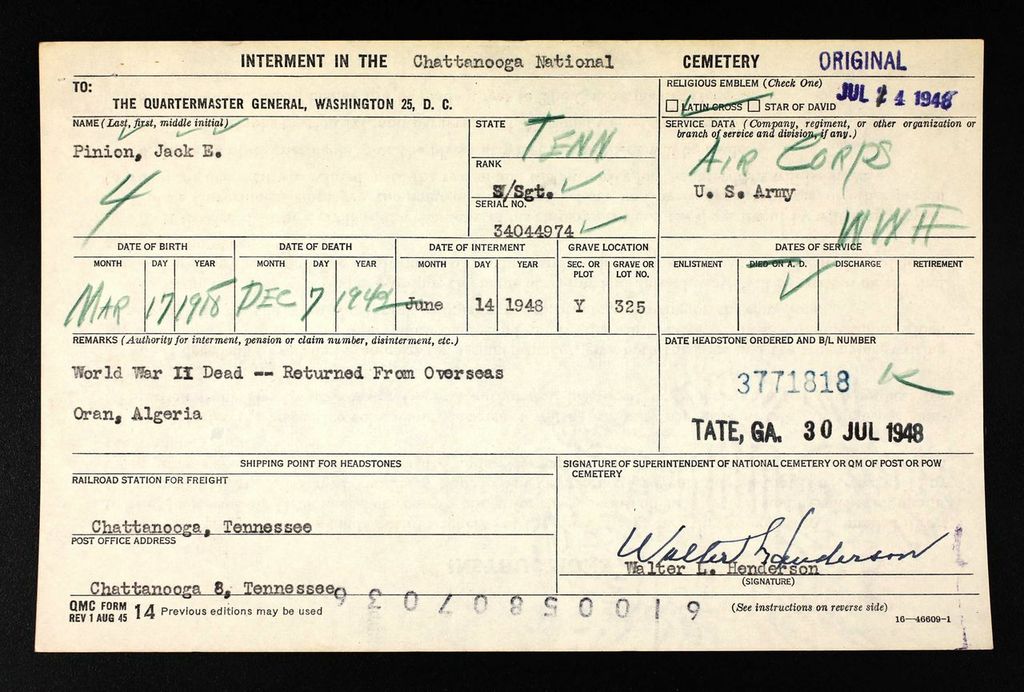 INTERMENT IN THE Chattanooga National CEMETERY ORIGINAL
TO:
THE QUARTERMASTER GENERAL, WASHINGTON 25, D. C.
RELIGIOUS EMBLEM (Check One)
JUL 24 1948
LATIN CROSS STAR OF DAVID
NAME (Last, first, middle initial)
Pinion, Jack E.
4
STATE
TENN
RANK
S/Sgt.
SERIAL NO.
34044974
SERVICE DATA (Company, regiment, or other organization or
branch of service and division, if any.)
AIR CORPS
U. S. Army
WWII
DATE OF BIRTH DATE OF DEATH DATE OF INTERMENT GRAVE LOCATION
MONTH DAY YEAR MONTH DAY YEAR MONTH DAY YEAR SEC. OR PLOT GRAVE OR LOT NO.
MAR 17 1918 DEC 7 1942 June 14 1948 Y 325
DATES OF SERVICE
ENLISTMENT DIED ON A. D. DISCHARGE RETIREMENT
REMARKS (Authority for interment, pension or claim number, disinterment, etc.)
World War II Dead -- Returned From Overseas
Oran, Algeria
DATE HEADSTONE ORDERED AND B/L NUMBER
3771818
TATE, GA. 30 JUL 1948
SHIPPING POINT FOR HEADSTONES
RAILROAD STATION FOR FREIGHT
Chattanooga, Tennessee
POST OFFICE ADDRESS
Chattanooga 8, Tennessee
SIGNATURE OF SUPERINTENDENT OF NATIONAL CEMETERY OR QM OF POST OR POW
CEMETERY
Walter L Henderson
Walter L. Henderson
(SIGNATURE)
QMC FORM
REV 1 AUG 45 14 Previous editions may be used
610058070369
(See instructions on reverse side)
16—46609-1